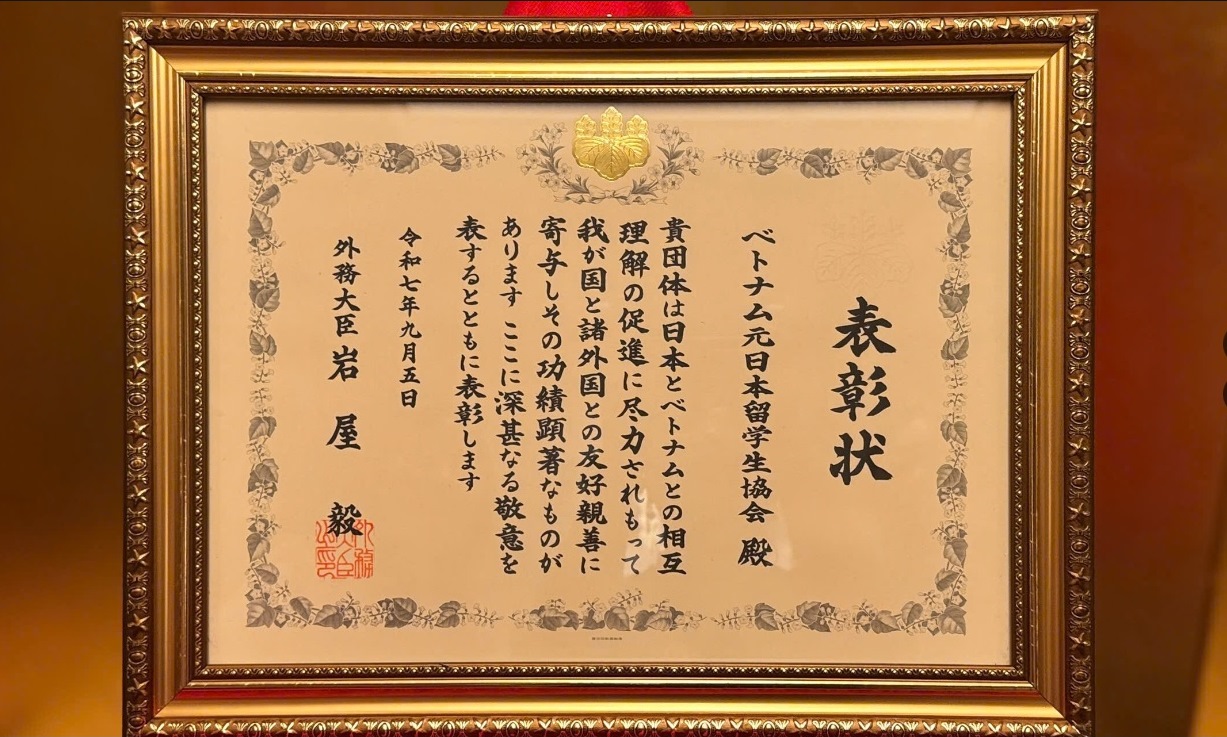 表彰状
ベトナム元日本留学生協会 殿
貴団体は日本とベトナムとの相互
理解の促進に尽力されもって
我が国と諸外国との友好親善に
寄与しその功績顕著なものが
あります ここに深甚なる敬意を
表するとともに表彰します
令和七年九月五日
外務大臣 岩屋 毅